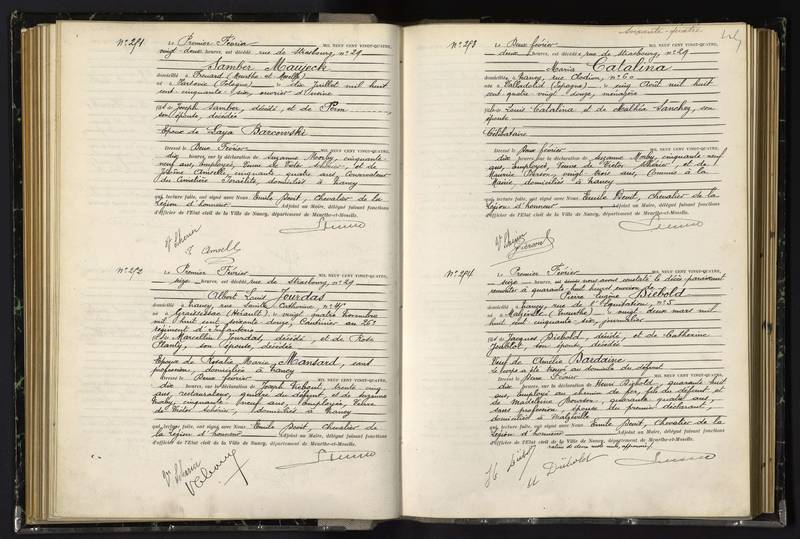 N° 271
Le Premier Février MIL NEUF CENT VINGT-QUATRE,
vingt-deux heures, est décédé, rue de Strasbourg, n° 29
Samber Maujeck
domicilié à Frouard (Meurthe et Moselle)
né à Varsovie (Pologne) le dix Juillet mil huit
cent cinquante six, ouvrier d'usine
fils de Joseph Samber, décédé, et de
son épouse, décédée
Epoux de Laja Barcowski
Dressé le Deux Février MIL NEUF CENT VINGT-QUATRE,
dix heures, sur la déclaration de Suzanne Morby, cinquante
neuf ans, employée, Veuve de Victor Schérier, et de
cinquante quatre ans, Conservateur
du Cimetière Israélite, domiciliés à Nancy
qui, lecture faite, ont signé avec Nous, Emile Bent, chevalier de la
Légion d'honneur Adjoint au Maire, délégué faisant fonctions
d'Officier de l'Etat civil de la Ville de Nancy, département de Meurthe-et-Moselle.
N° 272
Le Premier Février MIL NEUF CENT VINGT-QUATRE,
seize heures, est décédé rue de Strasbourg n° 29
Albert Louis Jourdas
domicilié à Nancy, rue Sainte Catherine, n°
né à Graissessac (Hérault) le vingt quatre Novembre
mil huit cent soixante douze, Cantinier au 26e
régiment d'Infanterie
fils de Marcellin Jourdas, décédé, et de Rose
Planty, son épouse, décédée
Epoux de Rosalie Marie Mansard, sans
profession, domiciliée à Nancy
Dressé le Deux février MIL NEUF CENT VINGT-QUATRE,
dix heures, sur la déclaration de Joseph trente cinq
ans, restaurateur, gendre du défunt, et de Suzanne
Morby, cinquante neuf ans, employée, Veuve
de Victor Schérier, domiciliés à Nancy
qui, lecture faite, ont signé avec Nous, Emile Bent, chevalier de
la Légion d'honneur Adjoint au Maire, délégué faisant fonctions
d'Officier de l'Etat civil de la Ville de Nancy, département de Meurthe-et-Moselle.
soixante-quatre
N° 273
Le Deux février MIL NEUF CENT VINGT-QUATRE,
deux heures, est décédée, rue de Strasbourg, n° 29
Maria Catalina
domiciliée à Nancy, rue Clodion, n° 60
née à Valladolid (Espagne) le cinq Août mil huit
cent quatre vingt douze, ménagère
fille de Louis Catalina et de Mathéa Sanchez, son
épouse
Célibataire
Dressé le Deux février MIL NEUF CENT VINGT-QUATRE,
dix heures, sur la déclaration de Suzanne Morby, cinquante neuf
ans, employée, Veuve de Victor Schérier, et de
Maurice Pierson, vingt trois ans, Commis à la
Mairie, domiciliés à Nancy
qui, lecture faite, ont signé avec Nous, Emile Bent, chevalier de la
Légion d'honneur Adjoint au Maire, délégué faisant fonctions
d'Officier de l'Etat civil de la Ville de Nancy, département de Meurthe-et-Moselle.
N° 274
Le Premier Février MIL NEUF CENT VINGT-QUATRE,
seize heures, nous avons constaté le décès paraissant
remonter à quarante huit heures environ de
Pierre Eugène Diébold
domicilié à Nancy, rue de l'Equitation, n° 5
né à Malzéville (Meurthe) le vingt deux mars mil
huit cent cinquante six, journalier
fils de Jacques Diébold, décédé, et de Catherine
son épouse, décédée
Veuf de Amélie Bardaine
le corps a été trouvé au domicile du défunt
Dressé le Deux Février MIL NEUF CENT VINGT-QUATRE,
dix heures, sur la déclaration de Henri Diébold, quarante huit
ans, employé au chemin de fer, fils du défunt, et
de Madeleine quarante quatre ans,
sans profession, épouse du premier déclarant,
domiciliés à Malzéville
qui, lecture faite, ont signé avec Nous, Emile Bent, chevalier de la
Légion d'honneur Adjoint au Maire, délégué faisant fonctions
d'Officier de l'Etat civil de la Ville de Nancy, département de Meurthe-et-Moselle.